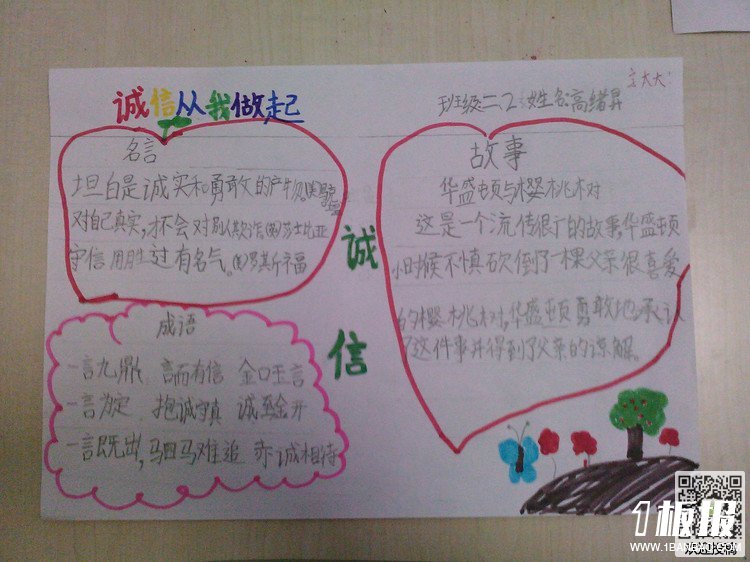 诚信从我做起
班级二、2 姓名:高绪昇
名言
坦白是诚实和勇敢的产物。
对自己真实,才不会对别人欺诈。(英)莎士比亚
守信用胜过有名气。(美)罗斯福
诚信
成语
一言九鼎 言而有信 金口玉言
一言为定 抱诚守真 诚至金开
一言既出,驷马难追 亦诚相待
故事
华盛顿与樱桃树
这是一个流传很广的故事,华盛顿
小时候不慎砍倒了一棵父亲很喜爱
的樱桃树,华盛顿勇敢地承认
了这件事并得到了父亲的谅解。
1板报
WWW.1BANBAO.COM
欢迎投稿